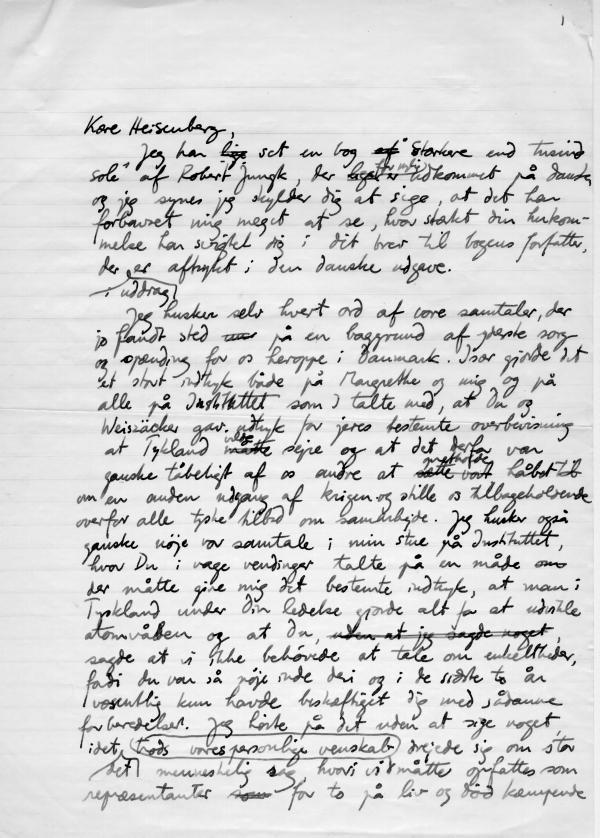 1
Kære Heisenberg,
Jeg har lige set en bog "Stærkere end tusind
sole" af Robert Jungk, der for nylig er udkommet på dansk,
og jeg synes jeg skylder dig at sige, at det har
forbavset mig meget at se, hvor stærkt din hukom-
melse har svigtet dig i dit brev til bogens forfatter,
der er aftrykt i den danske udgave.
i uddrag
Jeg husker selv hvert ord af vore samtaler, der
jo fandt sted på en baggrund af yderste sorg
og spænding for os heroppe i Danmark. Især gjorde det
et stort indtryk både på Margrethe og mig og på
alle på Instituttet som I talte med, at Du og
Weizsäcker gav udtryk for jeres bestemte overbevisning
at Tyskland ville måtte sejre og at det derfor var
ganske tåbeligt af os andre at sætte vort håbet til
om en anden udgang af krigen og stille os tilbageholdende
overfor alle tyske tilbud om samarbejde. Jeg husker også
ganske nøje vor samtale i min stue på Instituttet,
hvor Du i vage vendinger talte på en måde om
der måtte give mig det bestemte indtryk, at man i
Tyskland under Din ledelse gjorde alt for at udvikle
atomvåben og at Du, uden at jeg sagde noget,
sagde at vi ikke behøvede at tale om enkeltheder,
fordi du var så nøje inde deri og i de sidste to år
væsentlig kun havde beskæftiget dig med sådanne
forberedelser. Jeg hørte på det uden at sige noget,
idet, trods vores personlige venskab drejede sig om stor
det menneskelig sag, hvori vi måtte opfattes som
repræsentanter som for to på liv og død kæmpende